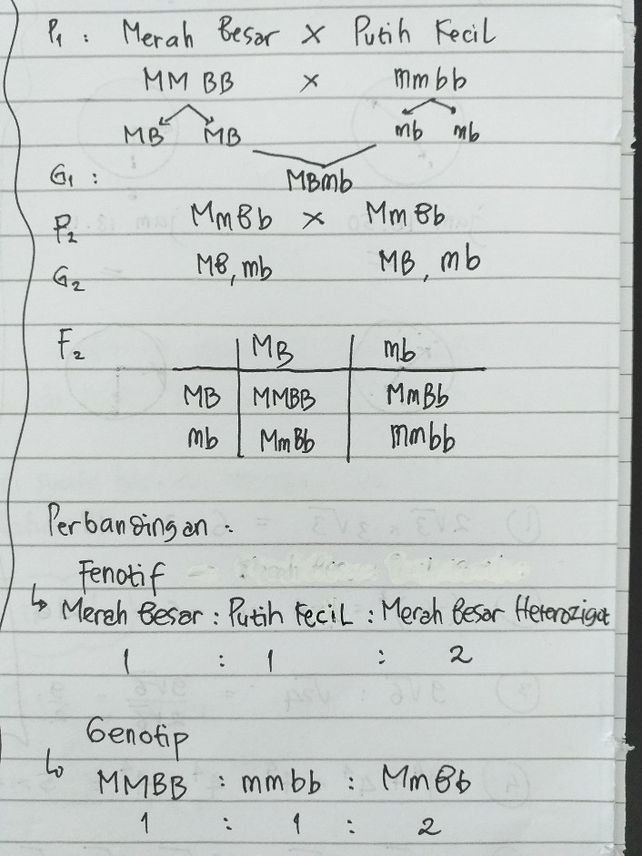 P₁ : Merah Besar X Putih Kecil
MM BB X mm bb
MB MB mb mb
G₁ : MBmb
P₂ MmBb X MmBb
G₂ MB, mb MB, mb
F₂ MB mb
MB MMBB MmBb
mb MmBb mmbb
Perbandingan :
Fenotif
↳ Merah Besar : Putih Kecil : Merah Besar Heterozigot
1 : 1 : 2
Genotip
↳ MMBB : mmbb : MmBb
1 : 1 : 2